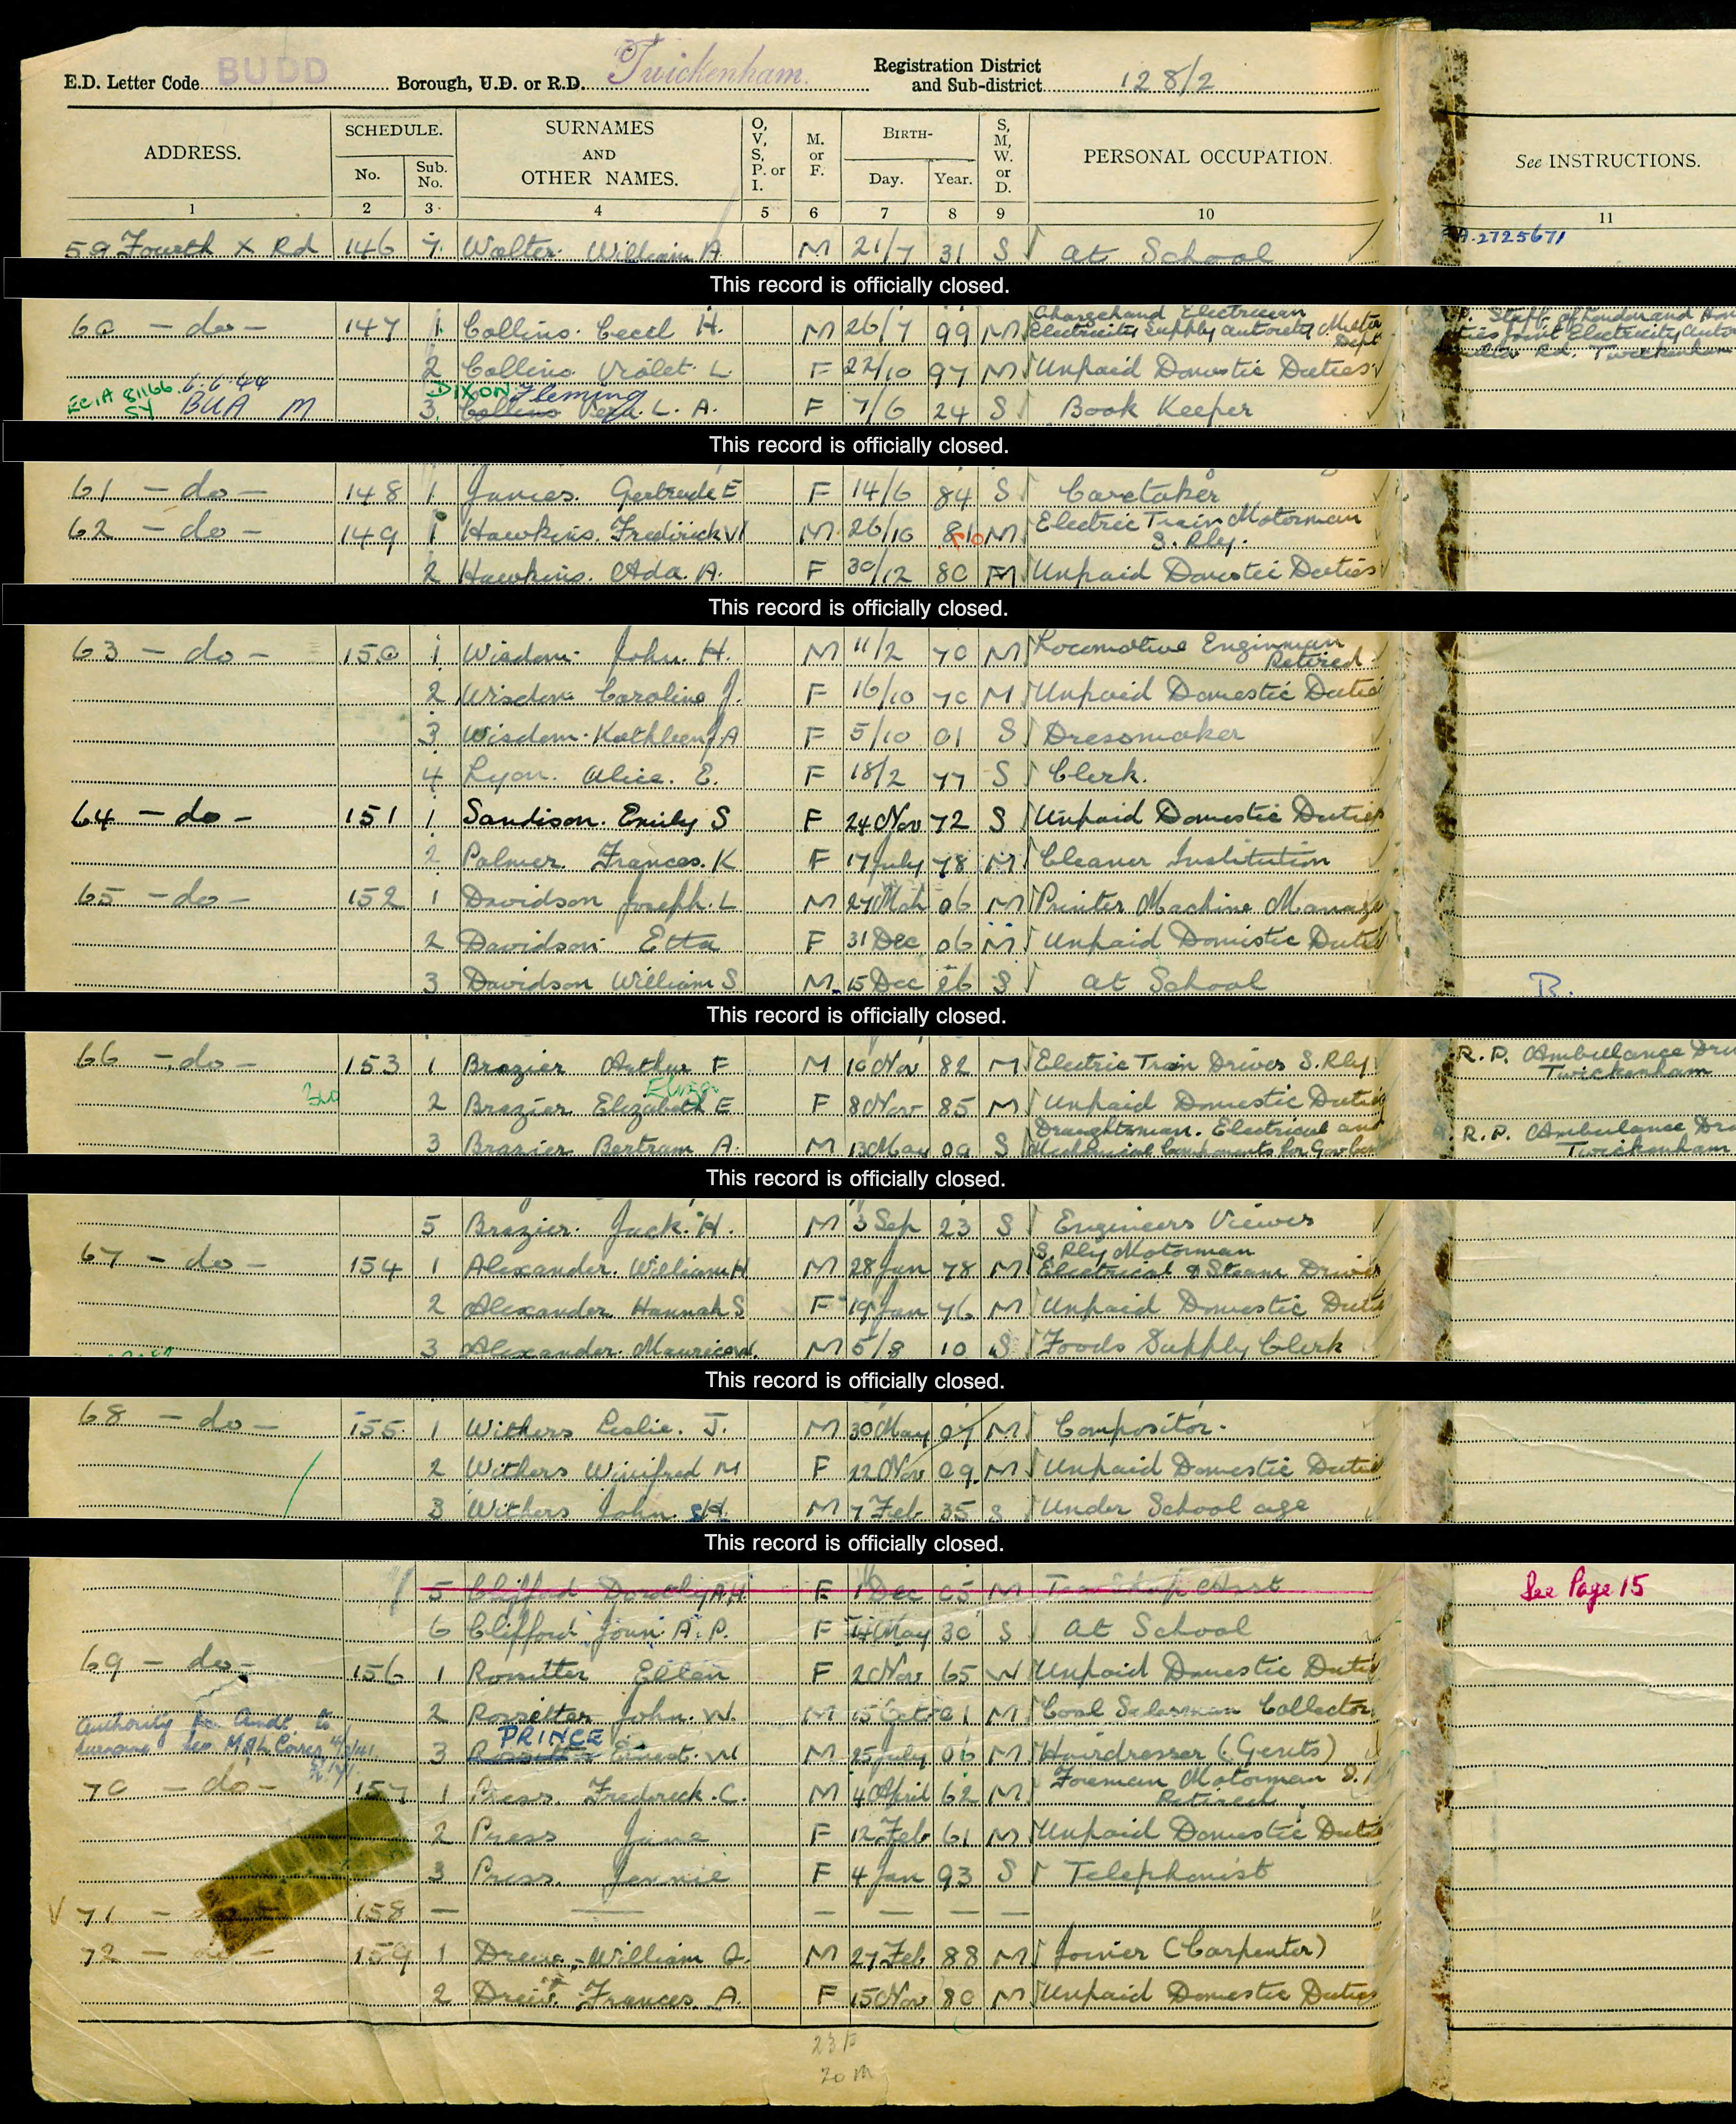 E.D. Letter Code BUDD Borough, U.D. or R.D. Twickenham. Registration District and Sub-district 128/2
ADDRESS. SCHEDULE. No. Sub. No. SURNAMES AND OTHER NAMES. O, V, S, P. or I. M. or F. BIRTH- Day. Year. S, M, W. or D. PERSONAL OCCUPATION. See INSTRUCTIONS.
1 2 3 4 5 6 7 8 9 10 11
59 Fourth X Rd 146 7 Walter William A M 21/7 31 S At School A.2725671
This record is officially closed.
60 - do - 147 1 Collins Cecil H. M 26/7 99 M Chargehand Electrician Electricity Supply Authority Meter Dept Staff of London and Electricity Rd. Twickenham
2 Collins Violet L. F 22/10 97 M Unpaid Domestic Duties
ECIA 81166 SY 6.6.44 BUA M DIXON Fleming
3 Collins Vera L. A. F 7/6 24 S Book Keeper
This record is officially closed.
61 - do - 148 1 James. Gertrude E F 14/6 84 S Caretaker
62 - do - 149 1 Hawkins. Frederick W M 26/10 81 M Electric Train Motorman S. Rly.
2 Hawkins. Ada. A. F 30/12 80 M Unpaid Domestic Duties
This record is officially closed.
63 - do - 150 1 Wisdom John. H. M 11/2 70 M Locomotive Enginman Retired
2 Wisdom Caroline J. F 16/10 70 M Unpaid Domestic Duties
3 Wisdom Kathleen J A F 5/10 01 S Dressmaker
4 Lyon. Alice. E. F 18/2 77 S Clerk.
64 - do - 151 1 Sandison. Emily S F 24 Nov 72 S Unpaid Domestic Duties
2 Palmer Frances. K F 17 July 78 M Cleaner Institution
65 - do - 152 1 Davidson Joseph. L M 27 Mch 06 M Printer Machine Manager
2 Davidson Etta F 31 Dec 06 M Unpaid Domestic Duties
3 Davidson William S M 15 Dec 26 S At School B.
This record is officially closed.
66 - do - 153 1 Brazier Arthur F M 10 Nov 82 M Electric Train Driver S. Rly R.P. Ambulance Dri Twickenham
2 Brazier Elizabeth E F 8 Nov 85 M Unpaid Domestic Duties
3 Brazier Bertram A. M 13 May 09 S Draughtsman. Electrical and Mechanical Components for Gov R.P. Ambulance Dri Twickenham
This record is officially closed.
5 Brazier. Jack. H. M 3 Sep 23 S Engineers Viewer
67 - do - 154 1 Alexander. William H M 28 Jan 78 M S. Rly Motorman Electrical & Steam Driver
2 Alexander Hannah S F 19 Jan 76 M Unpaid Domestic Duties
3 Alexander. Maurice W. M 5/8 10 S Foods Supply Clerk
This record is officially closed.
68 - do - 155 1 Withers Leslie. J. M 30 May 07 M Compositor.
2 Withers Winifred M F 22 Nov 09 M Unpaid Domestic Duties
3 Withers John M 7 Feb 35 S Under School age
This record is officially closed.
5 Clifford Dorothy A H. F 1 Dec 05 M Tea Shop Asst See Page 15
6 Clifford Joan A. P. F 14 May 30 S At School
69 - do - 156 1 Rossitter Ellen F 2 Nov 65 W Unpaid Domestic Duties
2 Rossitter John. W. M 15 Oct 01 M Coal Salesman Collector
Authority for Amdt. to surname see
PRINCE
3 Rossitter Ernest. W M 25 July 06 M Hairdresser (Gents)
70 - do - 157 1 Press. Frederick. C. M 4 April 62 M Foreman Motorman S. Retired
2 Press Jane F 12 Feb 61 M Unpaid Domestic Duties
3 Press. Jennie F 4 Jan 93 S Telephonist
V 71 - do - 158 — — — — — —
72 - do - 159 1 Drew, William G. M 27 Feb 88 M Joiner (Carpenter)
2 Drew. Frances. A. F 15 Nov 80 M Unpaid Domestic Duties
23 F
20 M